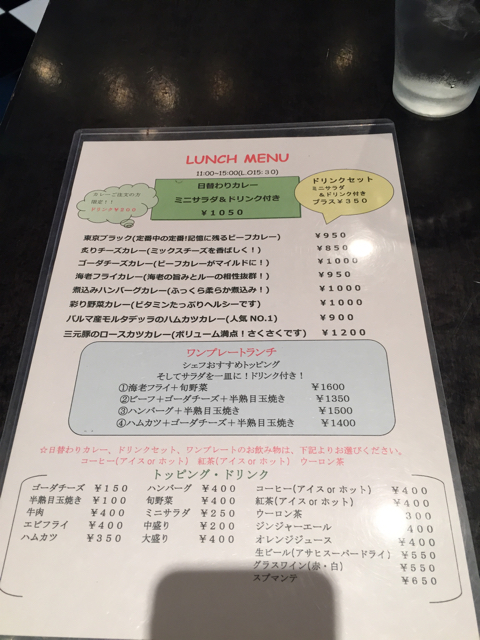 LUNCH MENU
11:00~15:00(L.O15:30)
日替わりカレー
ミニサラダ&ドリンク付き
¥1050
ドリンクセット
ミニサラダ
&ドリンク付き
プラス¥350
限定!!
東京ブラック(定番中の定番!記憶に残るビーフカレー) ¥950
炙りチーズカレー(ミックスチーズを香ばしく!) ¥850
ゴーダチーズカレー(ビーフカレーがマイルドに!) ¥1000
海老フライカレー(海老の旨みとルーの相性抜群!) ¥950
煮込みハンバーグカレー(ふっくら柔らか煮込み!) ¥1000
彩り野菜カレー(ビタミンたっぷりヘルシーです) ¥1000
パルマ産モルタデッラのハムカツカレー(人気 NO.1) ¥900
三元豚のロースカツカレー(ボリューム満点!さくさくです) ¥1200
ワンプレートランチ
シェフおすすめトッピング
そしてサラダを一皿に!ドリンク付き!
①海老フライ+旬野菜 ¥1600
②ビーフ+ゴーダチーズ+半熟目玉焼き ¥1350
③ハンバーグ+半熟目玉焼き ¥1500
④ハムカツ+ゴーダチーズ+半熟目玉焼き ¥1400
☆日替わりカレー、ドリンクセット、ワンプレートのお飲み物は、下記よりお選びください。
コーヒー(アイス or ホット) 紅茶(アイス or ホット) ウーロン茶
トッピング・ドリンク
ゴーダチーズ ¥150
半熟目玉焼き ¥100
牛肉 ¥400
エビフライ ¥400
ハムカツ ¥350
ハンバーグ ¥400
旬野菜 ¥400
ミニサラダ ¥250
中盛り ¥200
大盛り ¥400
コーヒー(アイス or ホット) ¥400
紅茶(アイス or ホット) ¥400
ウーロン茶 300
ジンジャーエール ¥400
オレンジジュース ¥400
生ビール(アサヒスーパードライ) ¥550
グラスワイン(赤・白) ¥550
スプマンテ ¥650